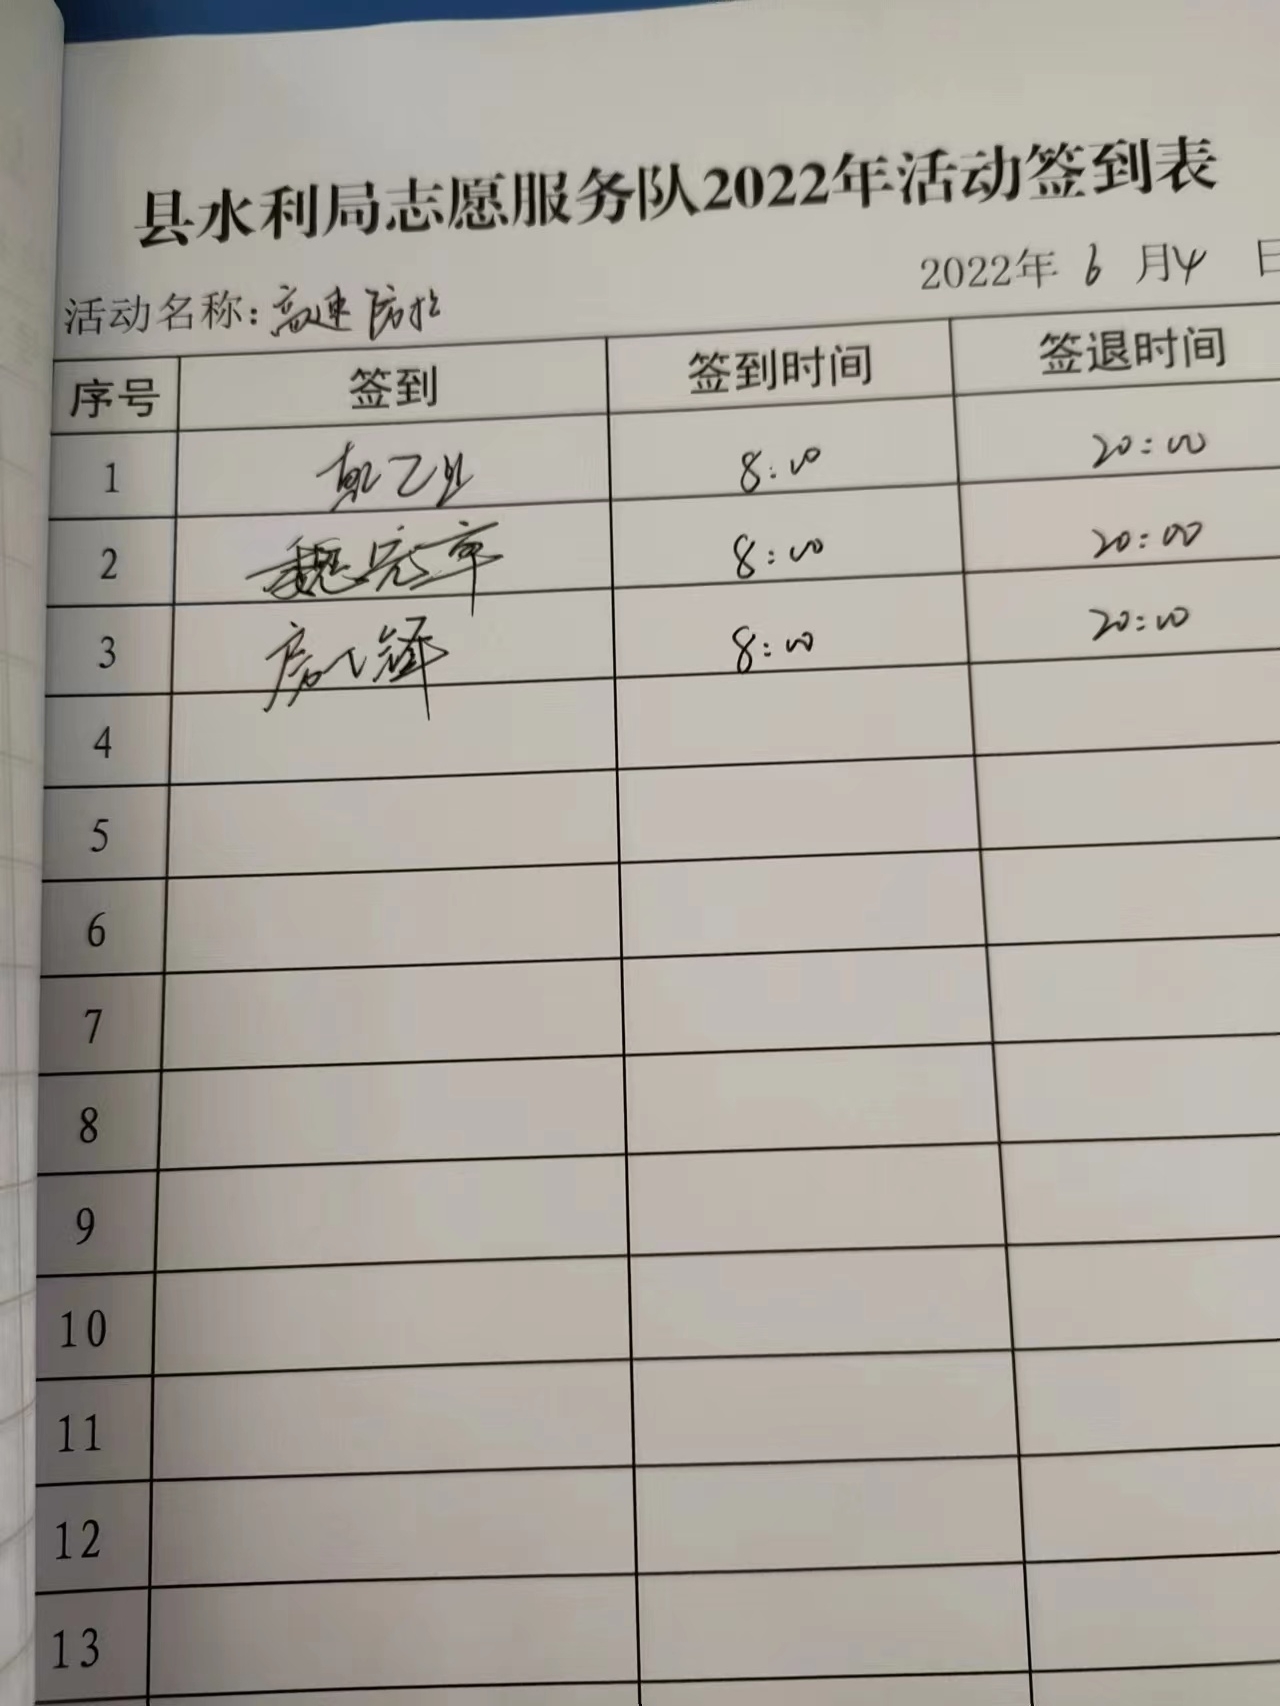 县水利局志愿服务队2022年活动签到表
2022年 6 月 4 日
活动名称:高速防控
序号 签到 签到时间 签退时间
1 8:00 20:00
2 魏 8:00 20:00
3 房 8:00 20:00
4
5
6
7
8
9
10
11
12
13